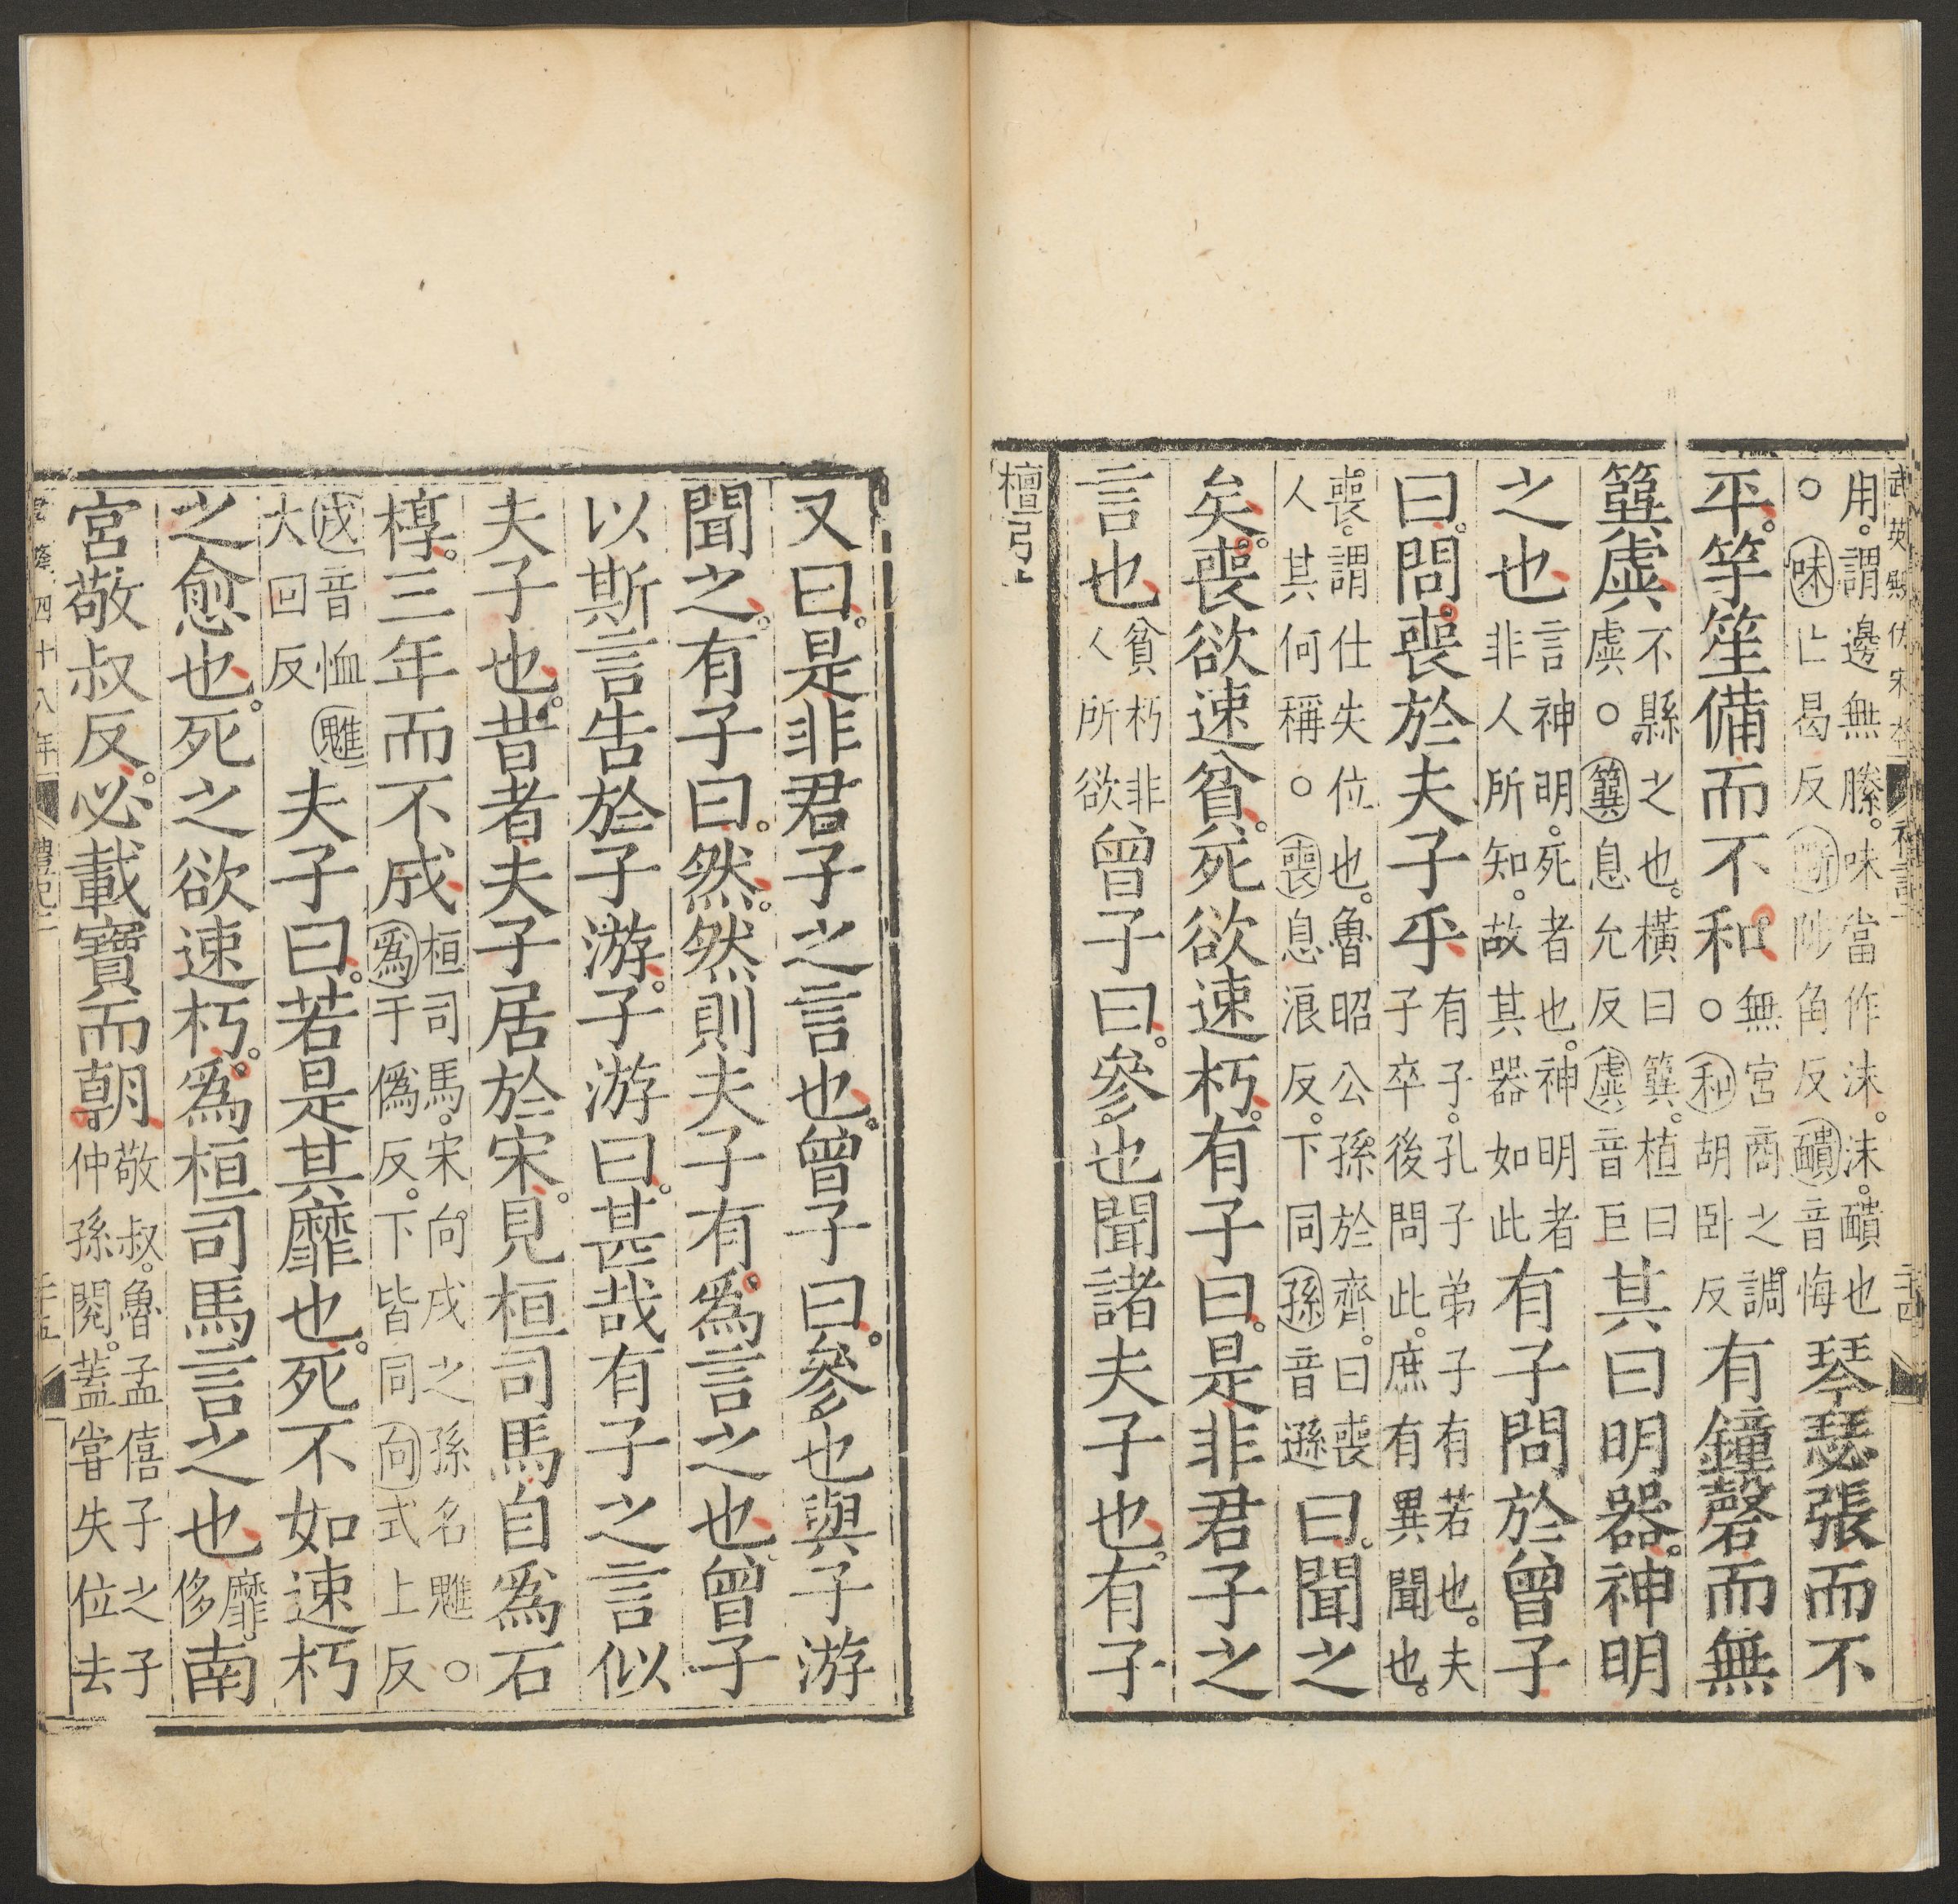 用。謂邊無縢。味當作沬。沬。靧也
○味亾曷反 斲陟角反 靧音悔 琴瑟張而不
平。竽笙備而不和。無宮商之調 ○和胡卧反 有鐘磬而無
簨虡 不縣之也。橫曰簨。植曰虡。○簨息允反 虡音巨 其曰明器。神明
之也 言神明。死者也。神明者非人所知。故其器如此 有子問於曾子
曰。問喪於夫子乎 有子。孔子弟子有若也。夫子卒後問此。庶有異聞也。
喪。謂仕失位也。魯昭公孫於齊。曰喪人其何稱。○喪息浪反。下同 孫音遜 曰。聞之
矣。喪欲速貧。死欲速朽。有子曰。是非君子之
言也 貧朽非人所欲 曾子曰。參也聞諸夫子也。有子
檀弓上
又曰。是非君子之言也。曾子曰。參也與子游
聞之。有子曰。然。然則夫子有爲言之也。曾子
以斯言告於子游。子游曰。甚哉有子之言似
夫子也。昔者夫子居於宋。見桓司馬自爲石
椁。三年而不成 桓司馬。宋向戌之孫名魋。○爲于僞反。下皆同 向式上反
戌音恤 魋大回反 夫子曰。若是其靡也。死不如速朽
之愈也。死之欲速朽。爲桓司馬言之也 靡。侈 南
宮敬叔反。必載寶而朝。敬叔。魯孟僖子之子仲孫閱。蓋嘗失位去